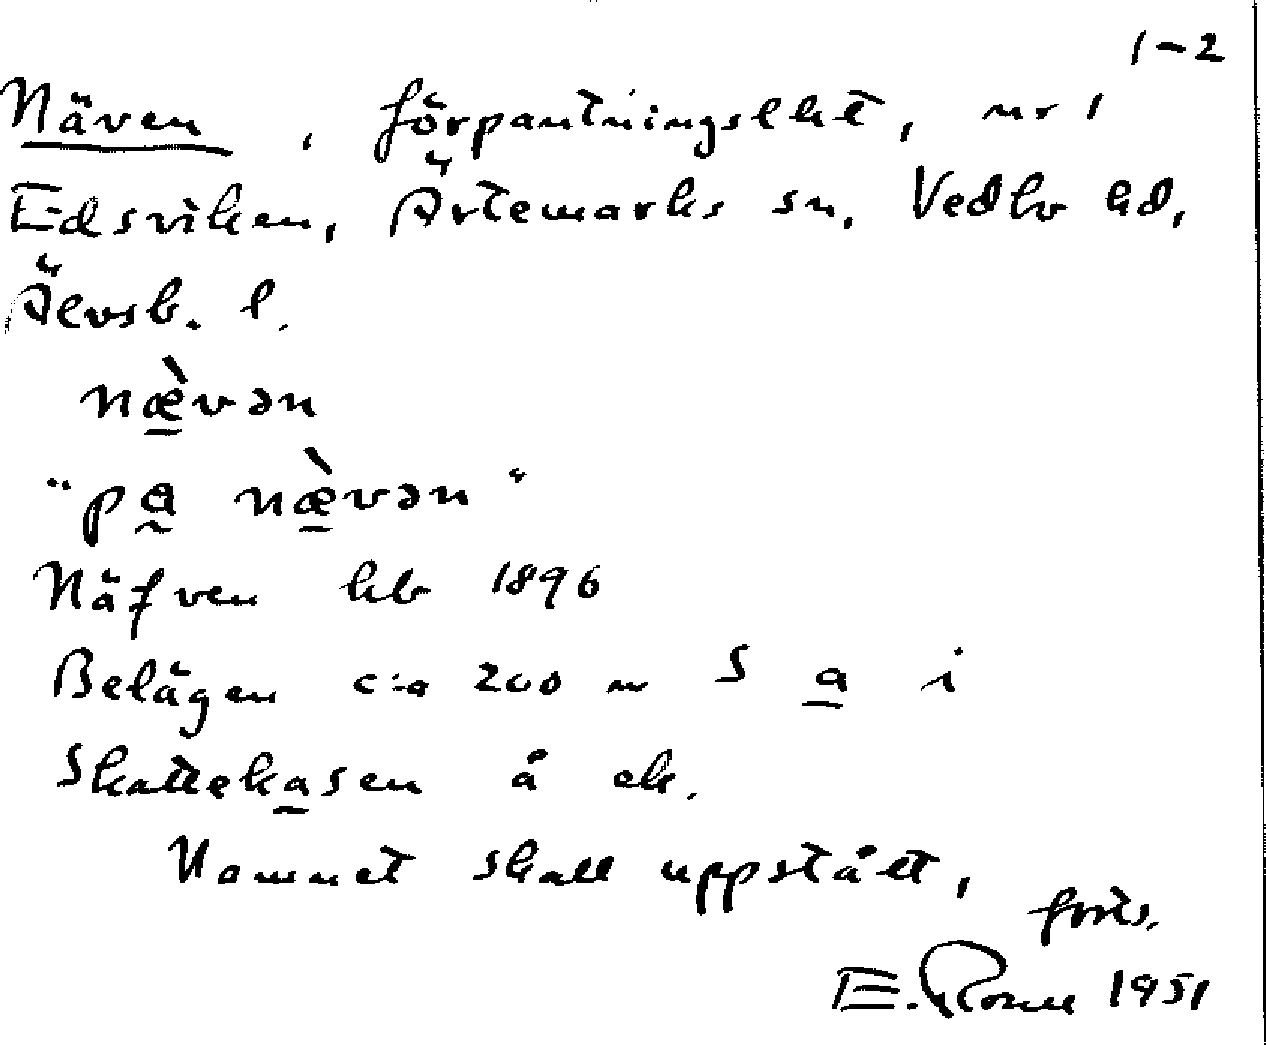 1-2
Näven, förpantningslht, nr 1
Edsviken, Ärtemarks sn, Vedbo hd,
Älvsb. l.
næ̀vən
"pa næ̀vən"
Näfven kb 1896
Belägen c:a 200 m S a i
Skattekasen å ek.
Namnet skall uppstått,
forts.
E. 1951